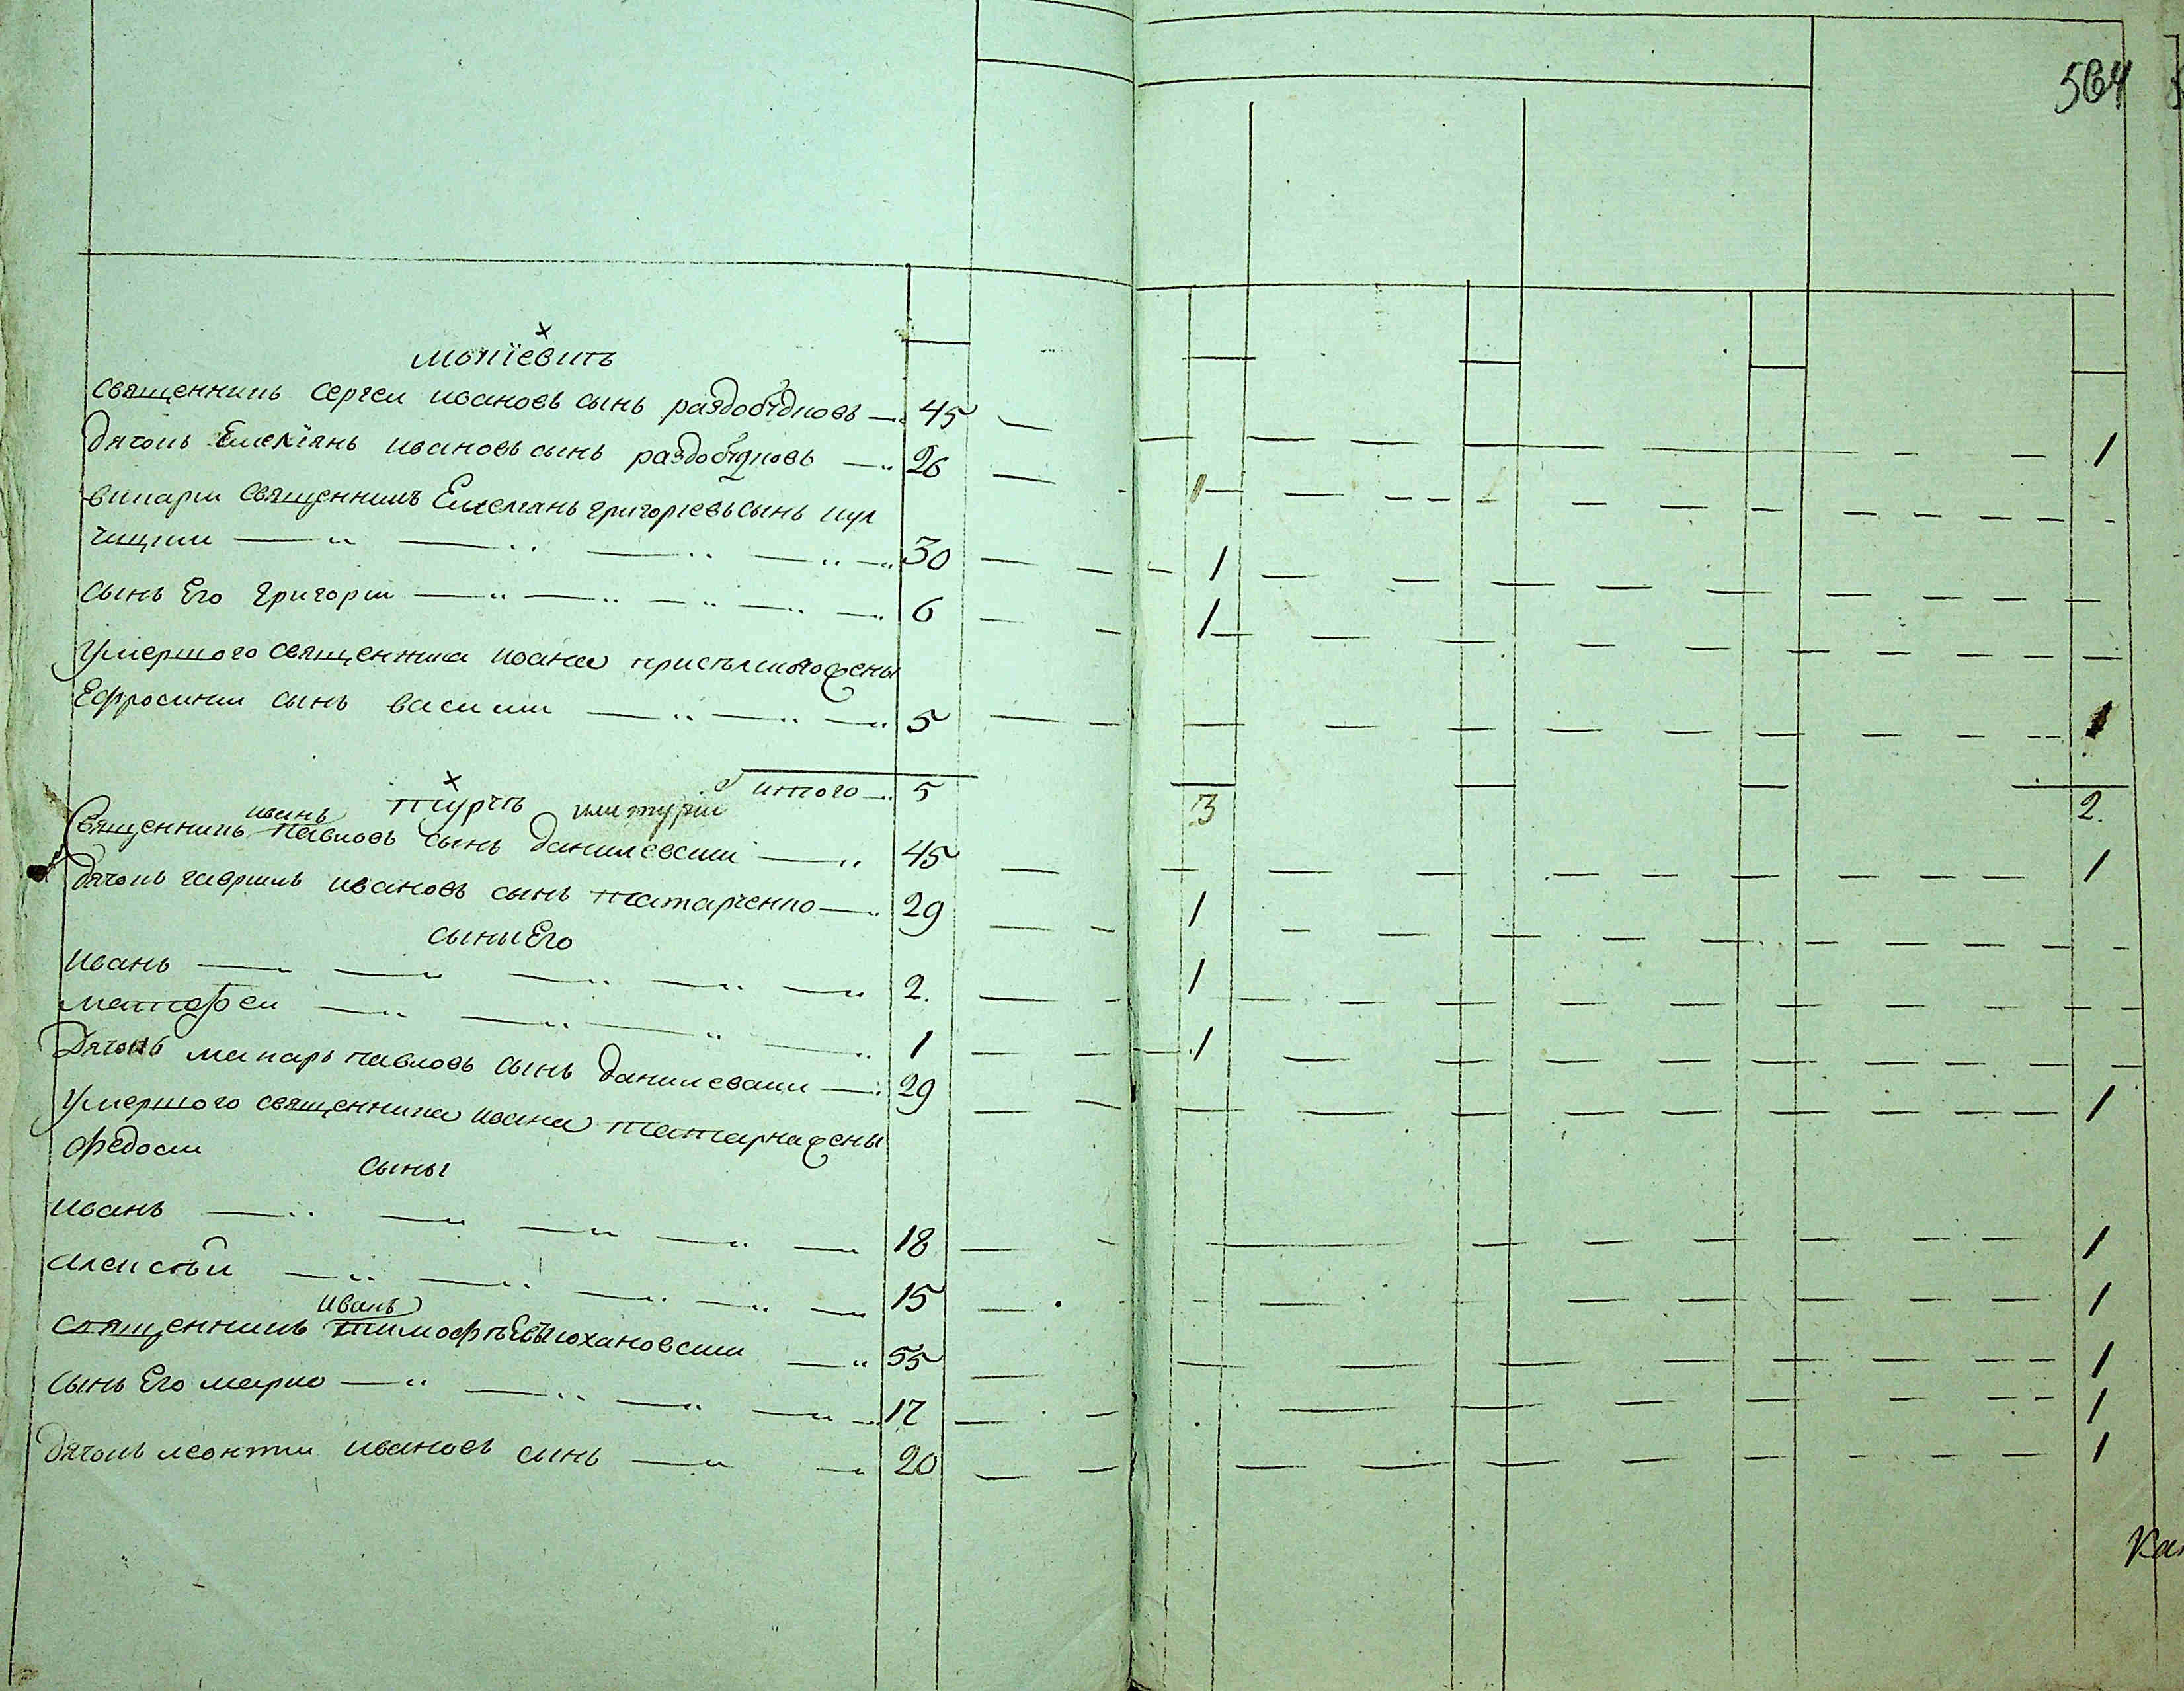 564
мокїевить
священникъ сергеи ивановъ сынъ раздобѣдковъ — 45 — 1
дячокъ Емелїянъ ивановъ сынъ раздобѣдковъ — 26 — 1
викарии священникъ Емелянъ григориевъ сынъ кул
чицкии — 30 — 1
сынъ Его григории — 6 — 1
Умершого священника иоана жены
Ефросинии сынъ василии — 5 — 1
итого — 5 3 2.
Турчъ или турии
иванъ
Священникъ павловъ сынъ данилевский — 45 — 1
дячокъ гавриилъ ивановъ сынъ татарченко — 29 — 1
сыны Его
иванъ — 2. — 1
матфеи — 1 — 1
Дячокъ макаръ павловъ сынъ данилевски — 29 — 1
Умершого священника иоана татарка жены
федосии
сыны
иванъ — 18 — 1
алексѣи — 15 — 1
иванъ
священникъ тимофѣевъ юхановскии — 55 — 1
сынъ Его марко — 17 — 1
дячокъ леонтии ивановъ сынъ — 20 — 1